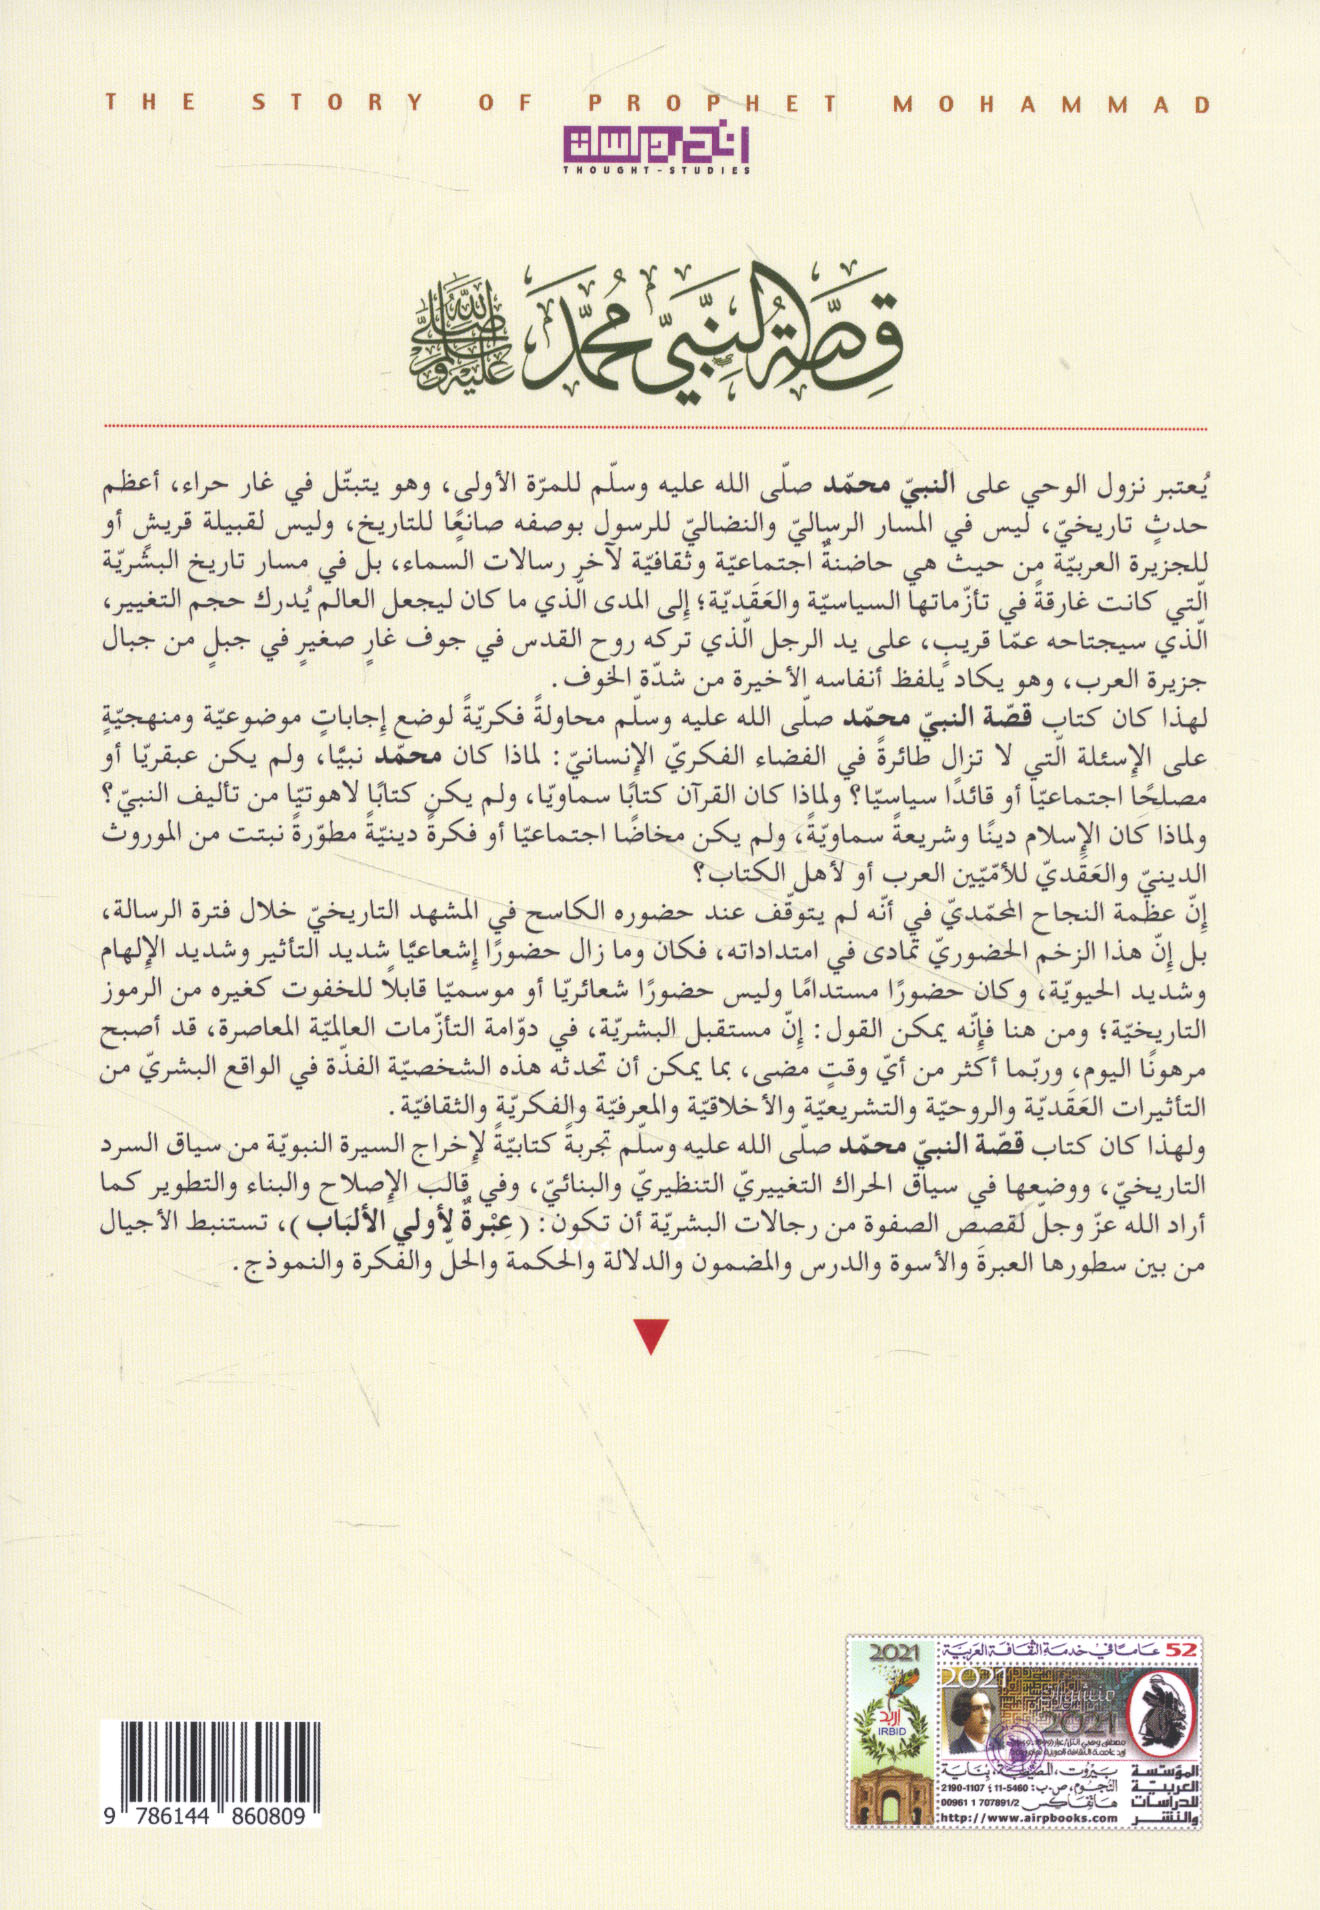 THE STORY OF PROPHET MOHAMMAD
THOUGHT-STUDIES
قِصَّةُ النَّبِيِّ مُحَمَّد صلى الله عليه وسلم
يُعتبر نزول الوحي على النبيّ محمّد صلّى الله عليه وسلّم للمرّة الأولى، وهو يتبتّل في غار حراء، أعظم
حدثٍ تاريخيّ، ليس في المسار الرساليّ والنضاليّ للرسول بوصفه صانعًا للتاريخ، وليس لقبيلة قريشٍ أو
للجزيرة العربيّة من حيث هي حاضنةٌ اجتماعيّة وثقافيّة لآخر رسالات السماء، بل في مسار تاريخ البشريّة
الّتي كانت غارقةً في تأزّماتها السياسيّة والعَقَديّة؛ إلى المدى الّذي ما كان ليجعل العالم يُدرك حجم التغيير،
الّذي سيجتاحه عمّا قريبٍ، على يد الرجل الّذي تركه روح القدس في جوف غارٍ صغيرٍ في جبلٍ من جبال
جزيرة العرب، وهو يكاد يلفظ أنفاسه الأخيرة من شدّة الخوف.
لهذا كان كتاب قصّة النبيّ محمّد صلّى الله عليه وسلّم محاولةً فكريّةً لوضع إجاباتٍ موضوعيّة ومنهجيّةٍ
على الإسئلة الّتي لا تزال طائرةً في الفضاء الفكريّ الإنسانيّ: لماذا كان محمّد نبيًّا، ولم يكن عبقريّا أو
مصلحًا اجتماعيّا أو قائدًا سياسيّا؟ ولماذا كان القرآن كتابًا سماويّا، ولم يكن كتابًا لاهوتيّا من تأليف النبيّ؟
ولماذا كان الإسلام دينًا وشريعةً سماويّةً، ولم يكن مخاضًا اجتماعيّا أو فكرةً دينيّةً مطوّرةً نبتت من الموروث
الدينيّ والعَقَديّ للأمّيّين العرب أو لأهل الكتاب؟
إنّ عظمة النجاح المحمّديّ في أنّه لم يتوقّف عند حضوره الكاسح في المشهد التاريخيّ خلال فترة الرسالة،
بل إنّ هذا الزخم الحضوريّ تمادى في امتداداته، فكان وما زال حضورًا إشعاعيًّا شديد التأثير وشديد الإلهام
وشديد الحيويّة، وكان حضورًا مستدامًا وليس حضورًا شعائريّا أو موسميّا قابلاً للخفوت كغيره من الرموز
التاريخيّة؛ ومن هنا فإنّه يمكن القول: إنّ مستقبل البشريّة، في دوّامة التأزّمات العالميّة المعاصرة، قد أصبح
مرهونًا اليوم، وربّما أكثر من أيّ وقتٍ مضى، بما يمكن أن تحدثه هذه الشخصيّة الفذّة في الواقع البشريّ من
التأثيرات العَقَديّة والروحيّة والتشريعيّة والأخلاقيّة والمعرفيّة والفكريّة والثقافيّة.
ولهذا كان كتاب قصّة النبيّ محمّد صلّى الله عليه وسلّم تجربةً كتابيّةً لإخراج السيرة النبويّة من سياق السرد
التاريخيّ، ووضعها في سياق الحراك التغييريّ التنظيريّ والبنائيّ، وفي قالب الإصلاح والبناء والتطوير كما
أراد الله عزّ وجلّ لقصص الصفوة من رجالات البشريّة أن تكون: (عِبْرةٌ لأولي الألبَاب)، تستنبط الأجيال
من بين سطورها العبرةَ والأسوة والدرس والمضمون والدلالة والحكمة والحلّ والفكرة والنموذج.
52 عاماً في خدمة الثقافة العربية
2021
2021
2021
اربد
IRBID
المؤسسة
العربية
للدراسات
والنشر
بيروت، المصيطبة، بناية
النجوم، ص.ب: 5460-11؛ 1107-2190
هاتفاكس 00961 1 707891/2
http://www.airpbooks.com
9 786144 860809